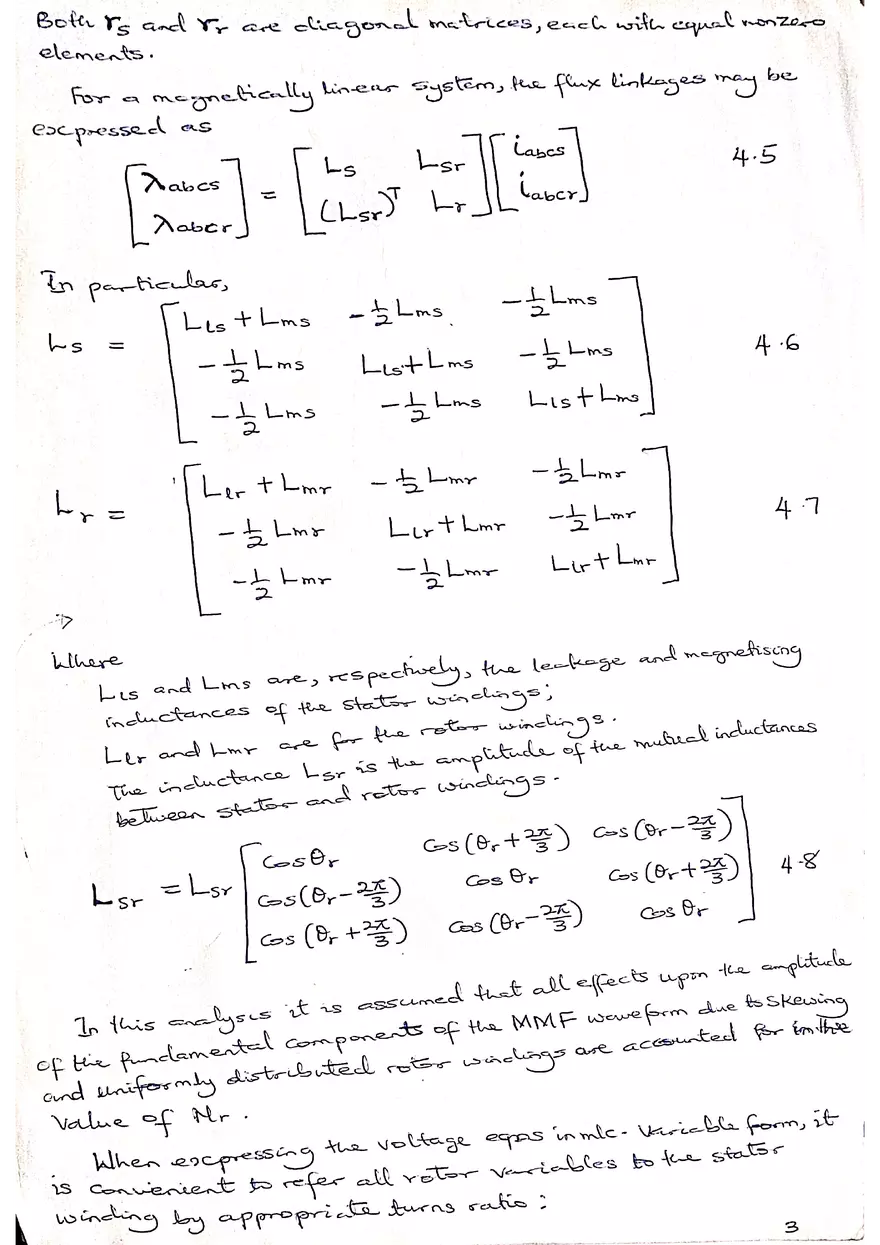 Both rs and rr are diagonal matrices, each with equal nonzero
elements.
For a magnetically linear system, the flux linkages may be
expressed as
[λabcs; λabcr] = [Ls Lsr; (Lsr)ᵀ Lr] [iabcs; iabcr] 4.5
In particular,
Ls = [Lls + Lms -½Lms -½Lms; -½Lms Lls + Lms -½Lms; -½Lms -½Lms Lls + Lms] 4.6
Lr = [Llr + Lmr -½Lmr -½Lmr; -½Lmr Llr + Lmr -½Lmr; -½Lmr -½Lmr Llr + Lmr] 4.7
Where
Lls and Lms are, respectively, the leakage and magnetising
inductances of the stator windings;
Llr and Lmr are for the rotor windings.
The inductance Lsr is the amplitude of the mutual inductances
between stator and rotor windings.
Lsr = Lsr [Cosθr Cos(θr + 2π/3) Cos(θr - 2π/3); Cos(θr - 2π/3) Cosθr Cos(θr + 2π/3); Cos(θr + 2π/3) Cos(θr - 2π/3) Cosθr] 4.8
In this analysis it is assumed that all effects upon the amplitude
of the fundamental components of the MMF waveform due to skewing
and uniformly distributed rotor windings are accounted for in the
value of Nr.
When expressing the voltage eqns in m/c-variable form, it
is convenient to refer all rotor variables to the stator
winding by appropriate turns ratio:
3